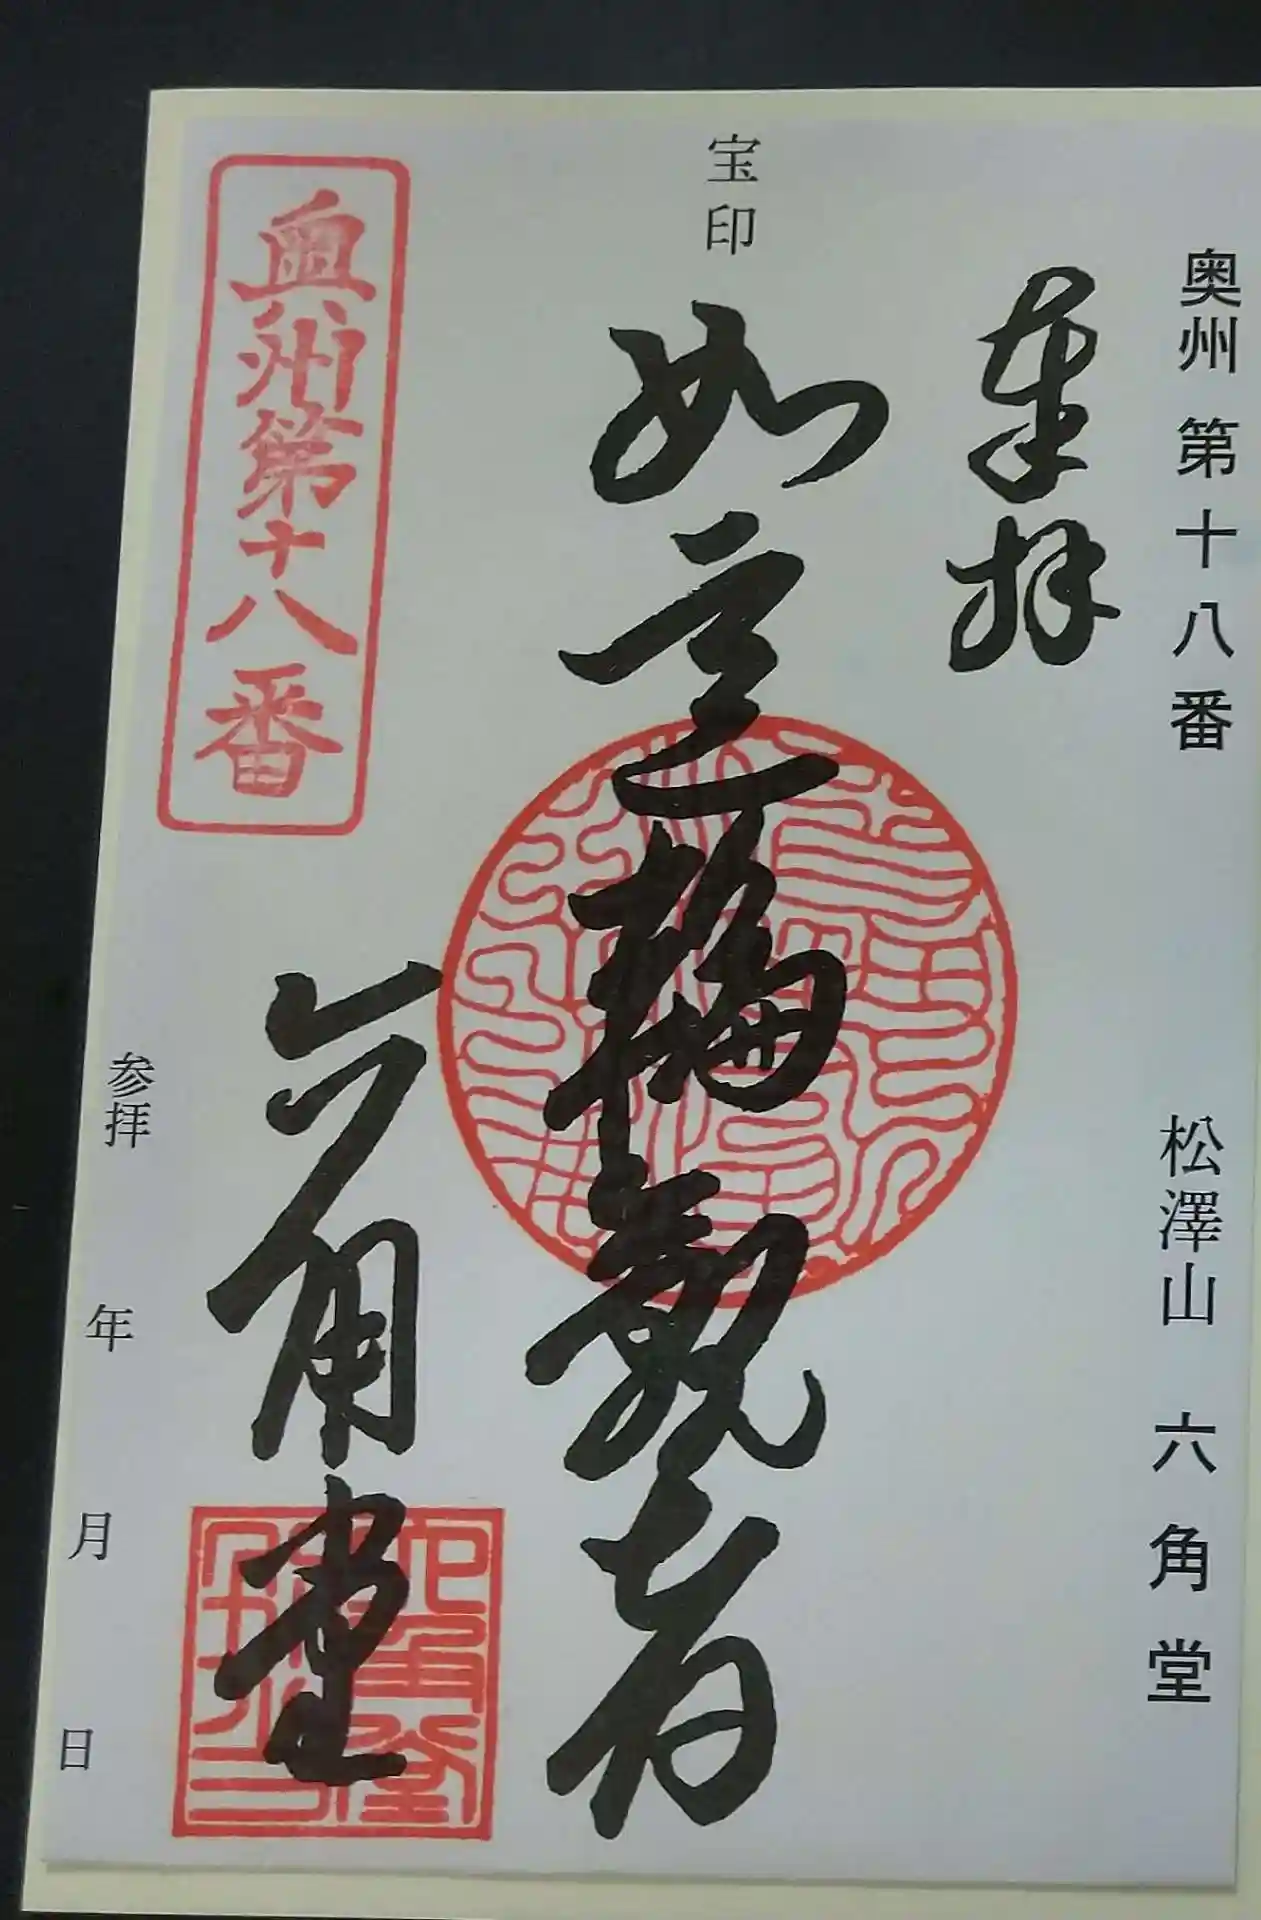 奥州第十八番 松澤山 六角堂
奉拝
宝印
如意輪観音
六角堂
奥州第十八番
参拝 年 月 日